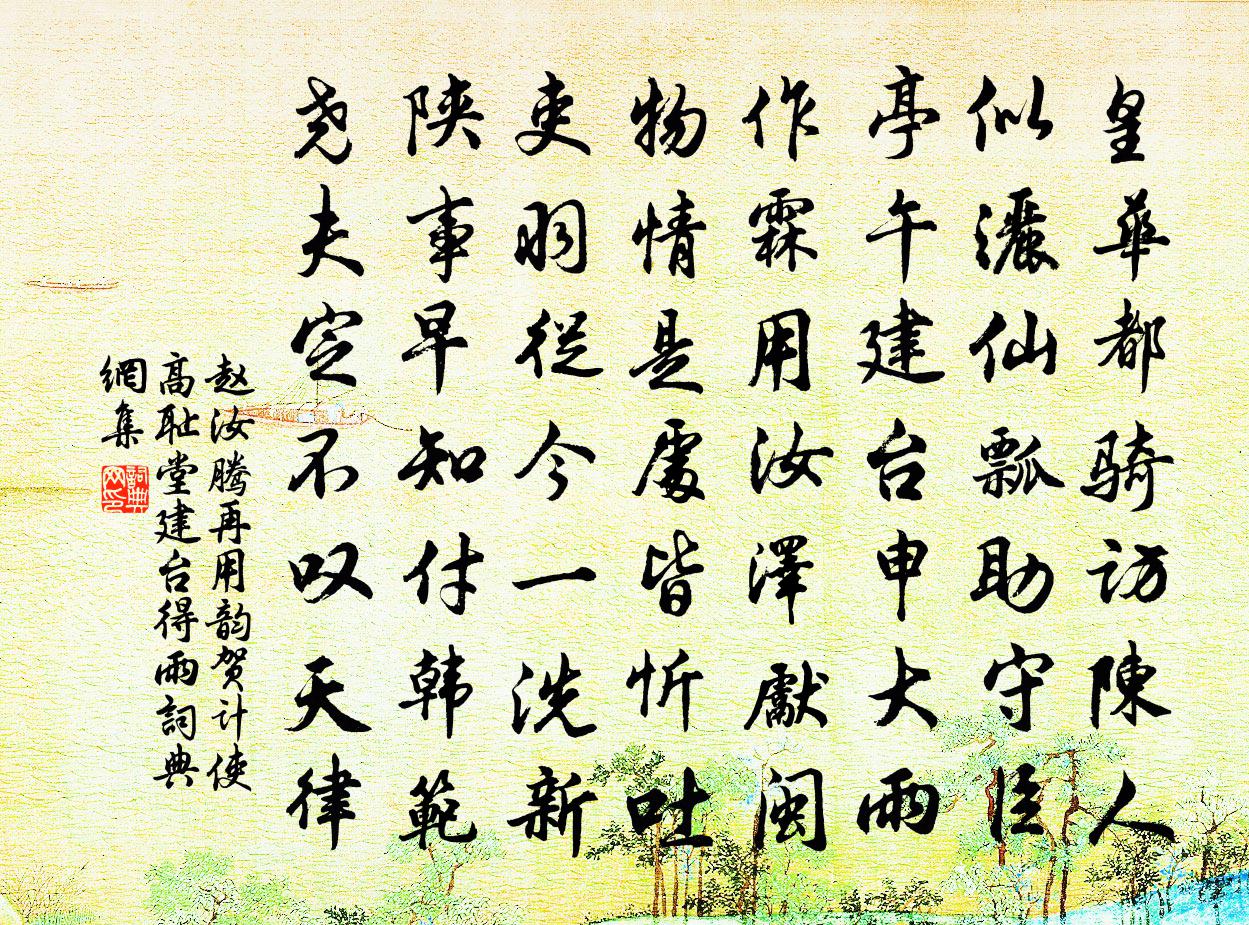 皇華都騎訪陳人
似灑仙瓢助守臣
亭午建台申大雨
作霖用汝澤獻閩
物情是處皆忻吐
吏弱從今一洗新
陝事早知付韩範
尧夫定不叹天律
赵汝腾再用韵贺计使
高耻堂建台得雨詞典
網集